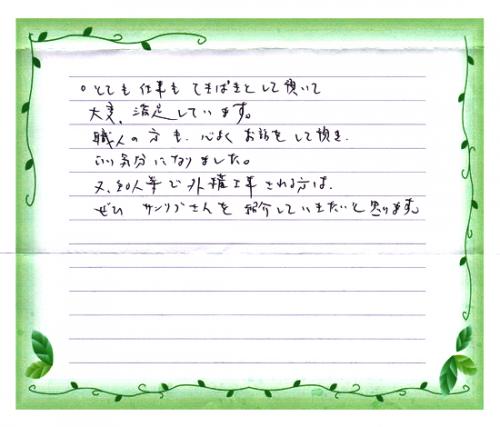 。とても 仕事も てきぱきとして頂いて
大変、満足しています。
職人の方も、心よく お話をして頂き、
いい気分になりました。
又、知人等で外構工事される方は、
ぜひ サンリブさんを 紹介していきたいと思います。